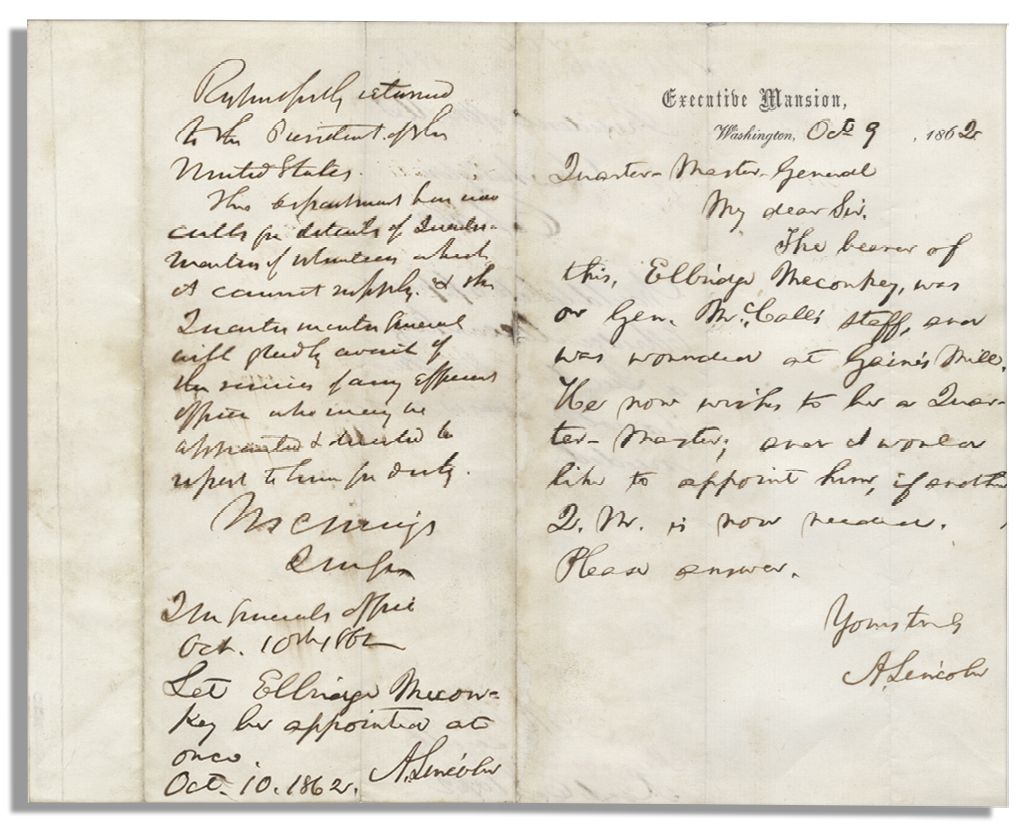 Executive Mansion,
Washington, Oct 9, 1862
Quarter-Master-General
My dear Sir.
The bearer of
this, Elbridge Meconkey, was
on Gen. McCall's staff, and
was wounded at Gaines' Mill.
He now wishes to be a Quar-
ter-Master; and I would
like to appoint him, if another
Q. M. is now needed.
Please answer.
Yours truly
A. Lincoln
Respectfully returned
to the President of the
United States.
This department has now
calls for details of Quarter-
masters of volunteers which
it cannot supply. & the
Quartermaster General
will gladly avail of
the services of any efficient
officer who may be
appointed & directed to
report to him for duty.
M C Meigs
QMGen
QM Generals office
Oct. 10th 1862
Let Elbridge Mecon-
key be appointed at
once.
A. Lincoln
Oct. 10. 1862.